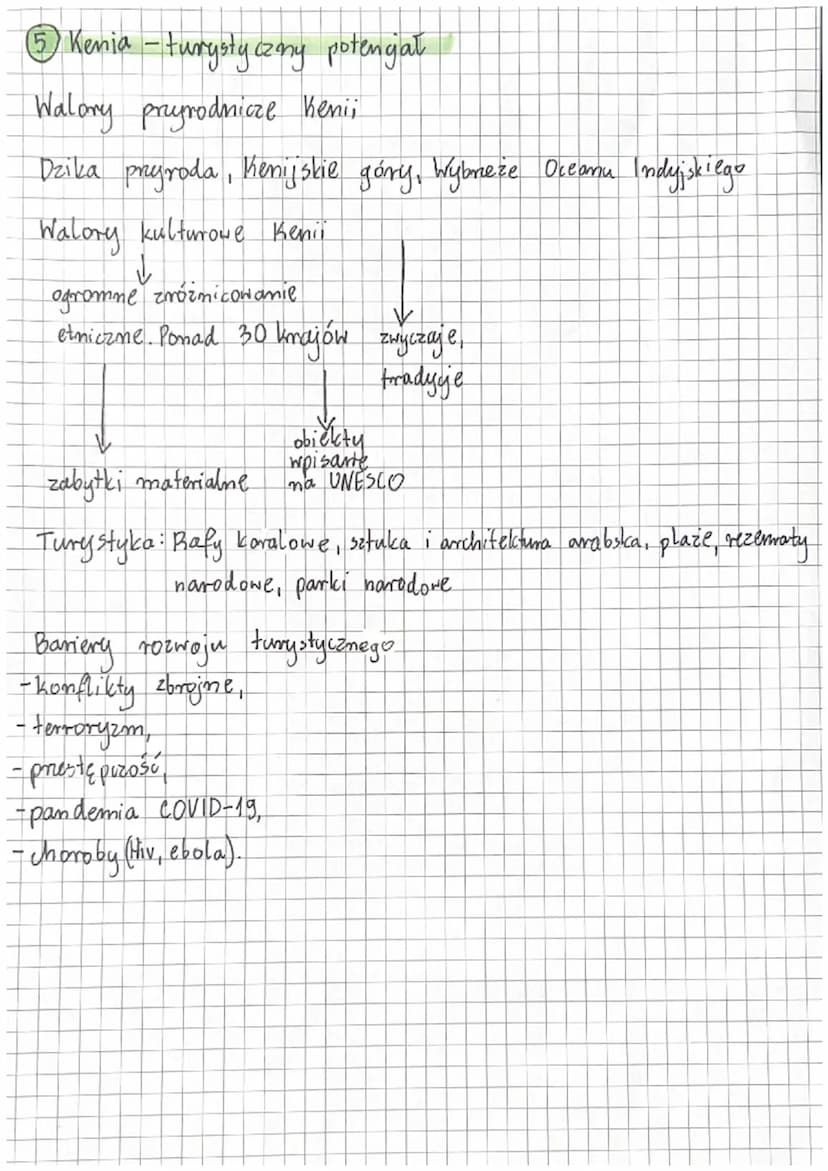 5 Kenia - turystyczny potencjał
Walory przyrodnicze Kenii
Dzika przyroda, Kenijskie góry, Wybrzeże Oceanu Indyjskiego
Walory kulturowe Kenii
ogromne zróżnicowanie
etniczne. Ponad 30 krajów
zwyczaje,
tradycje
zabytki materialne
obiekty
wpisane
na UNESCO
Turystyka: Rafy koralowe, sztuka i architektura arabska, plaże, rezerwaty
narodowe, parki narodowe
Bariery rozwoju turystycznego
- konflikty zbrojne,
- terroryzm,
- przestępczość,
- pandemia COVID-19,
- choroby (Hiv, ebola).